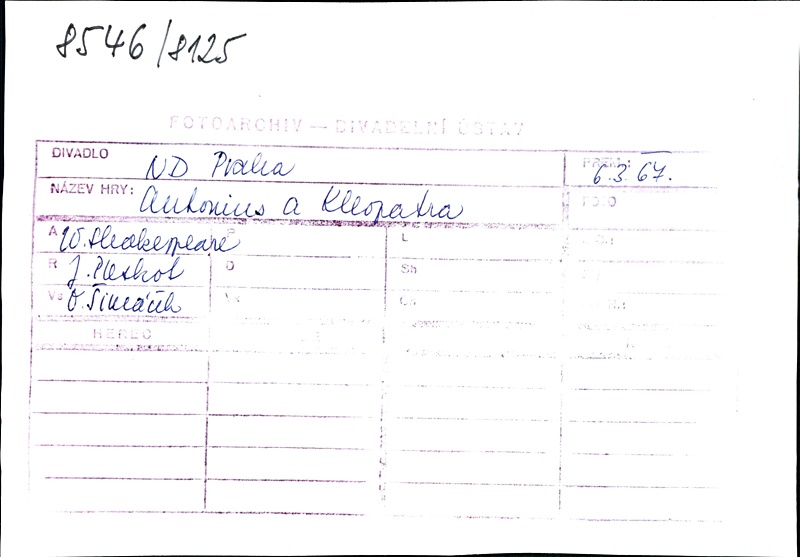 8546/8125
FOTOARCHIV — DIVADELNÍ ÚSTAV
DIVADLO ND Praha
PREM.: 6.3 67.
NÁZEV HRY: Antonius a Kleopatra
FOTO
A W. Shakespeare
L
R J. Pleskot
D
Sh
Vs O. Šimáček
HEREC